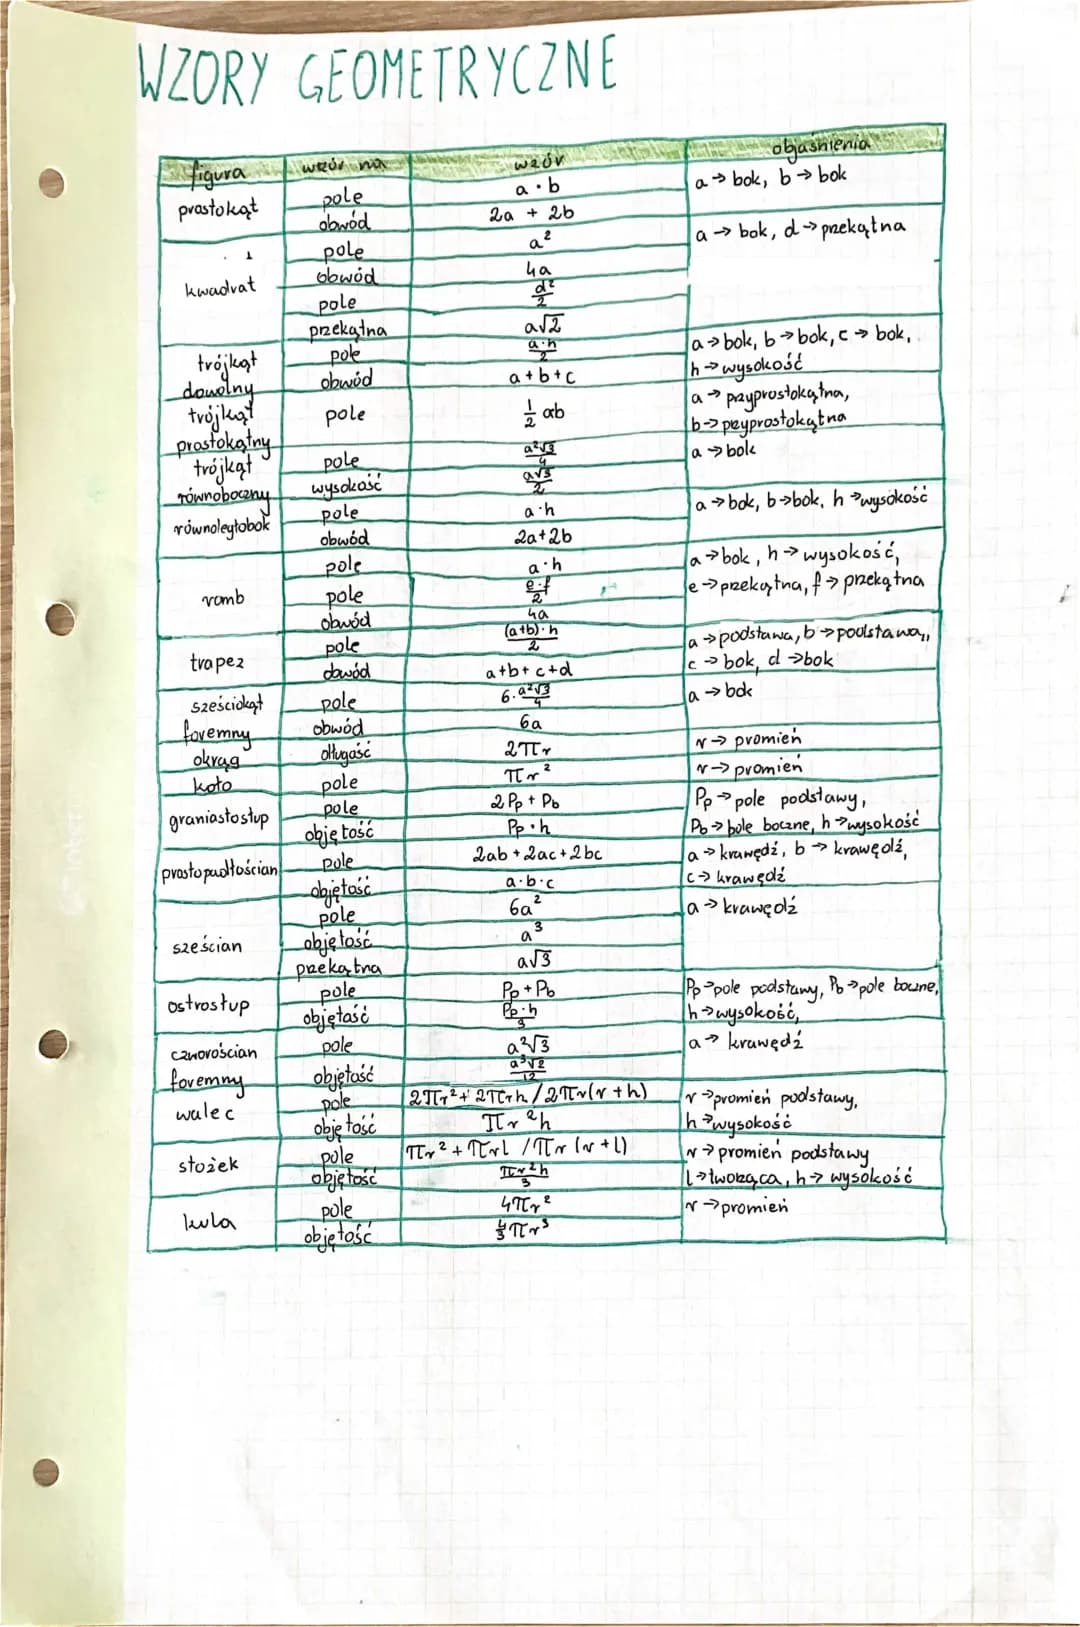 WZORY GEOMETRYCZNE
figura | wzór na | wzór | objaśnienia
prostokąt | pole | a · b | a → bok, b → bok
obwód | 2a + 2b
kwadrat | pole | a² | a → bok, d → przekątna
obwód | 4a
pole | d²/2
przekątna | a√2
trójkąt dowolny | pole | a·h/2 | a → bok, b → bok, c → bok, h → wysokość
obwód | a + b + c
trójkąt prostokątny | pole | 1/2 ab | a → przyprostokątna, b → przyprostokątna
trójkąt równoboczny | pole | a²√3/4 | a → bok
wysokość | a√3/2
równoległobok | pole | a·h | a → bok, b → bok, h → wysokość
obwód | 2a+2b
romb | pole | a·h | a → bok, h → wysokość, e → przekątna, f → przekątna
pole | e·f/2
obwód | 4a
trapez | pole | (a+b)·h/2 | a → podstawa, b → podstawa, c → bok, d → bok
obwód | a+b+c+d
sześciokąt foremny | pole | 6·a²√3/4 | a → bok
obwód | 6a
okrąg | długość | 2πr | r → promień
koło | pole | πr² | r → promień
graniastosłup | pole | 2Pp + Pb | Pp → pole podstawy, Pb → pole boczne, h → wysokość
objętość | Pp · h
prostopadłościan | pole | 2ab + 2ac + 2bc | a → krawędź, b → krawędź, c → krawędź
objętość | a·b·c
sześcian | pole | 6a² | a → krawędź
objętość | a³
przekątna | a√3
ostrosłup | pole | Pp + Pb | Pp → pole podstawy, Pb → pole boczne, h → wysokość,
objętość | Pp·h/3
czworościan foremny | pole | a²√3 | a → krawędź
objętość | a³√2/12
walec | pole | 2πr² + 2πrh / 2πr(r + h) | r → promień podstawy, h → wysokość
objętość | πr²h
stożek | pole | πr² + πrl / πr (r + l) | r → promień podstawy l → tworząca, h → wysokość
objętość | πr²h/3
kula | pole | 4πr² | r → promień
objętość | 4/3 πr³